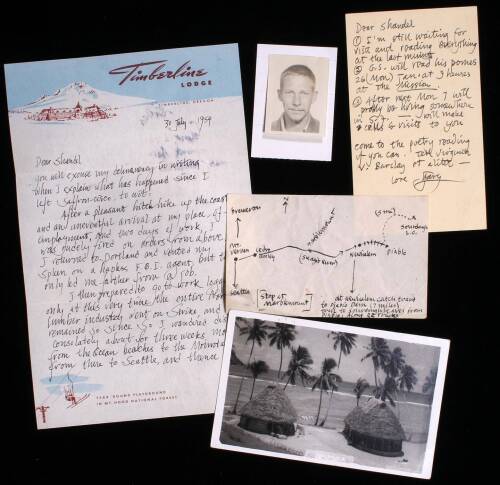 Timberline
LODGE
TIMBERLINE, OREGON
30 July — 1954
Dear Shandel
you will excuse my delinquency in writing
when I explain what has happened since I
left Saffron-cisco. to wit:
After a pleasant hitch hike up the coast
and an uneventful arrival at my place of
employment, and two days of work, I
was rudely fired on orders from above.
I returned to Portland and vented my
Spleen on a hapless F.B.I. agent, but
only led me farther from a job.
I then prepared to go to work
only at this very time the entire
lumber industry went on strike, and
remained so since. So I wandered
consolately about for three weeks,
from the Ocean beaches to the
from there to Seattle, and thence
YEAR-ROUND PLAYGROUND
IN MT. HOOD NATIONAL FOREST
Dear Shandel
① I'm still waiting for
visa and reading everything
at the last minute
② G.S. will read his poems
26 (Mon) Jan. at 9 hours
at the Mission.
③ After next Mon I will
probly be living somewhere
in S.F. — will make
calls & visits to you
come to the poetry reading
if you can. tell
Barclay of it too
love Gary
N
Bremerton
Seattle
[Stop at
Marblemount]
Marblemount
Newhalem
Diablo
(5 mi)
at Newhalem catch
to Diablo Dam (7 miles)